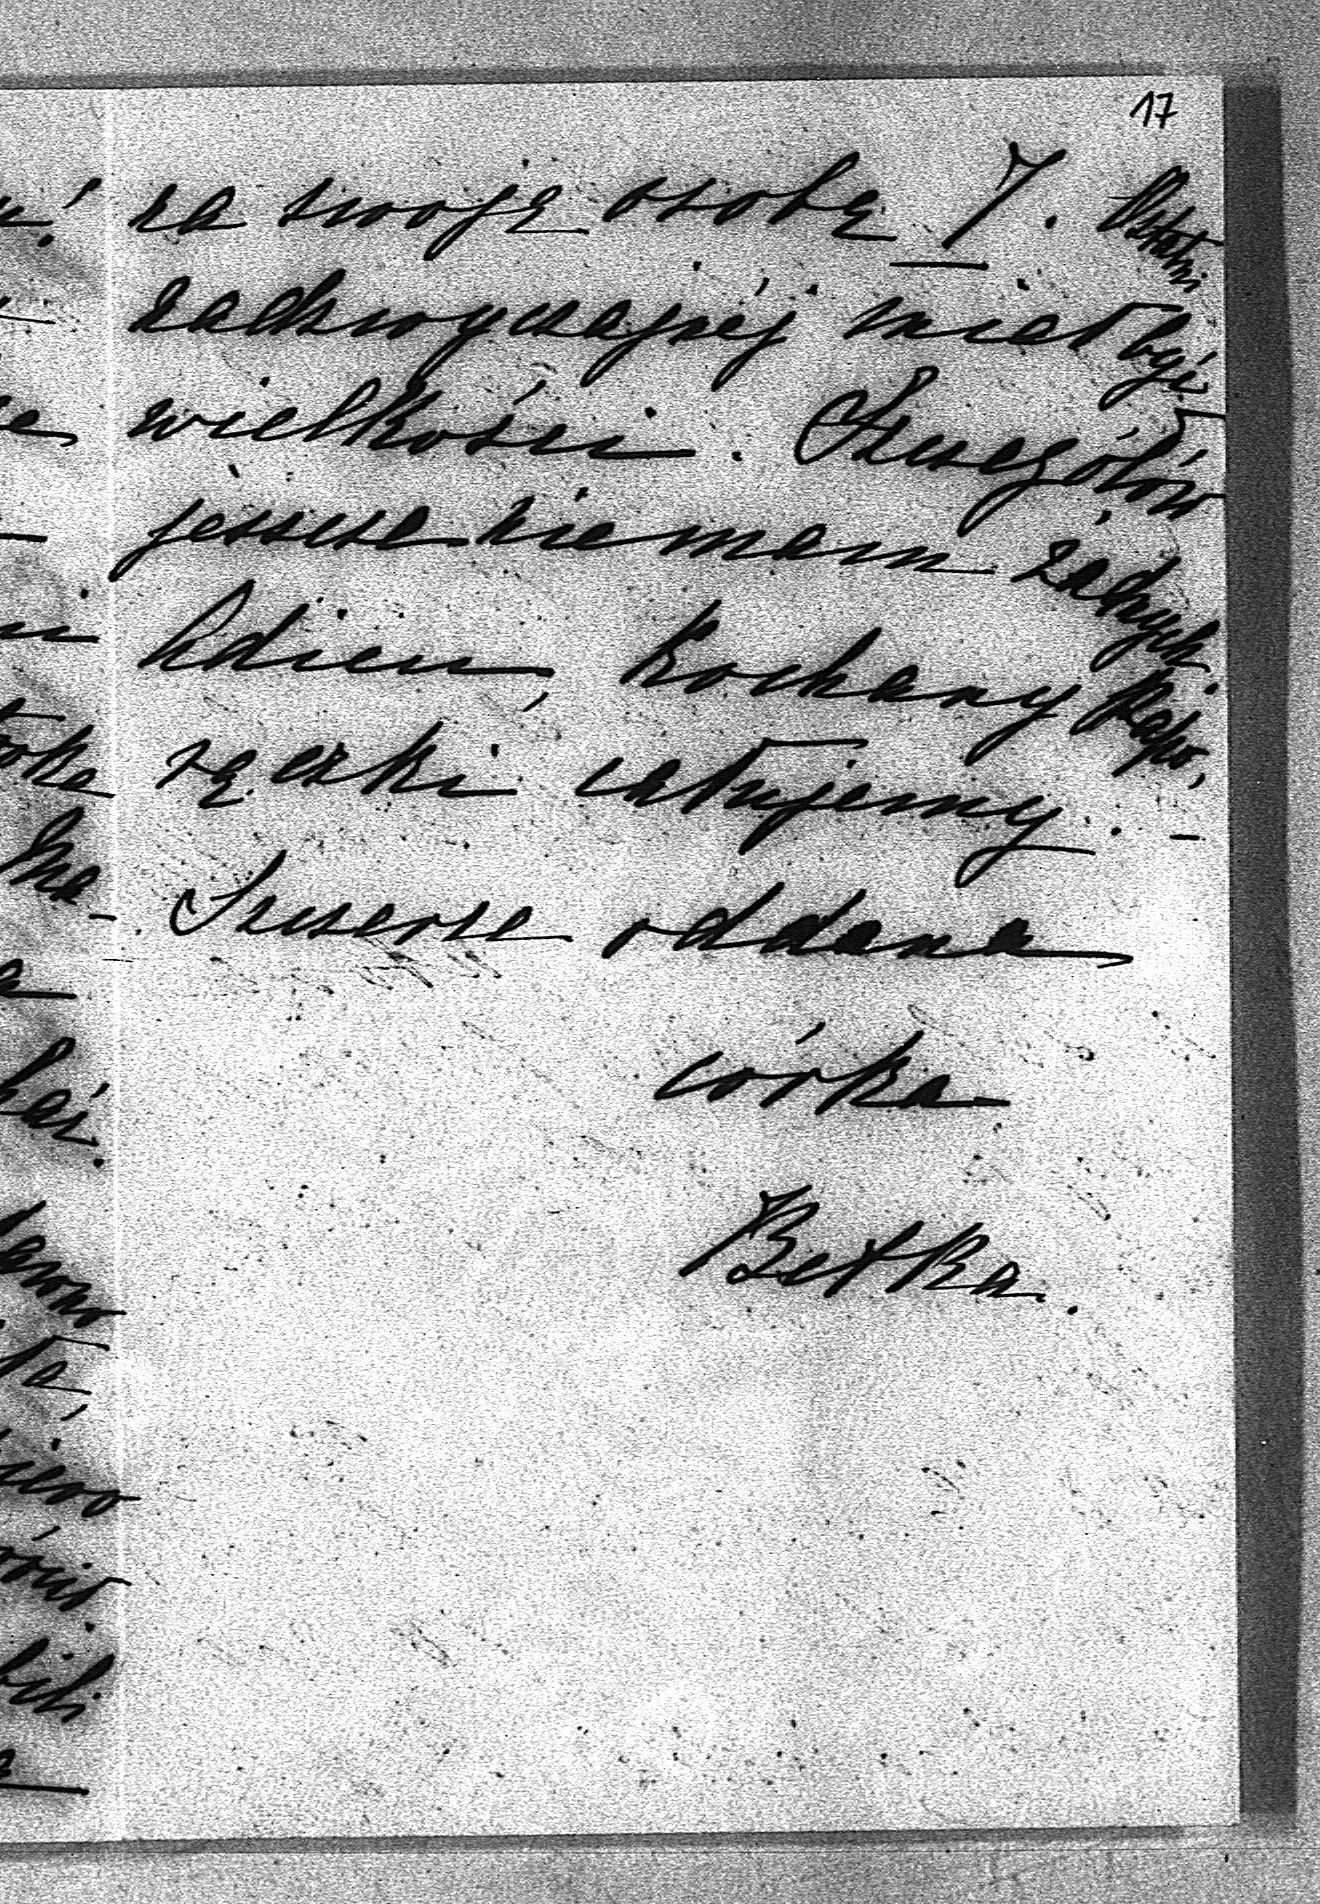 17
za swoję osobę 7. Ostatni
nadzwyczajnéj miał być
wielkości. Szczegółów
jeszcze nie mam żadnych.
Adieu, Kochany Papo,
rączki całujemy. —
Szczerze oddana
córka
Betka.